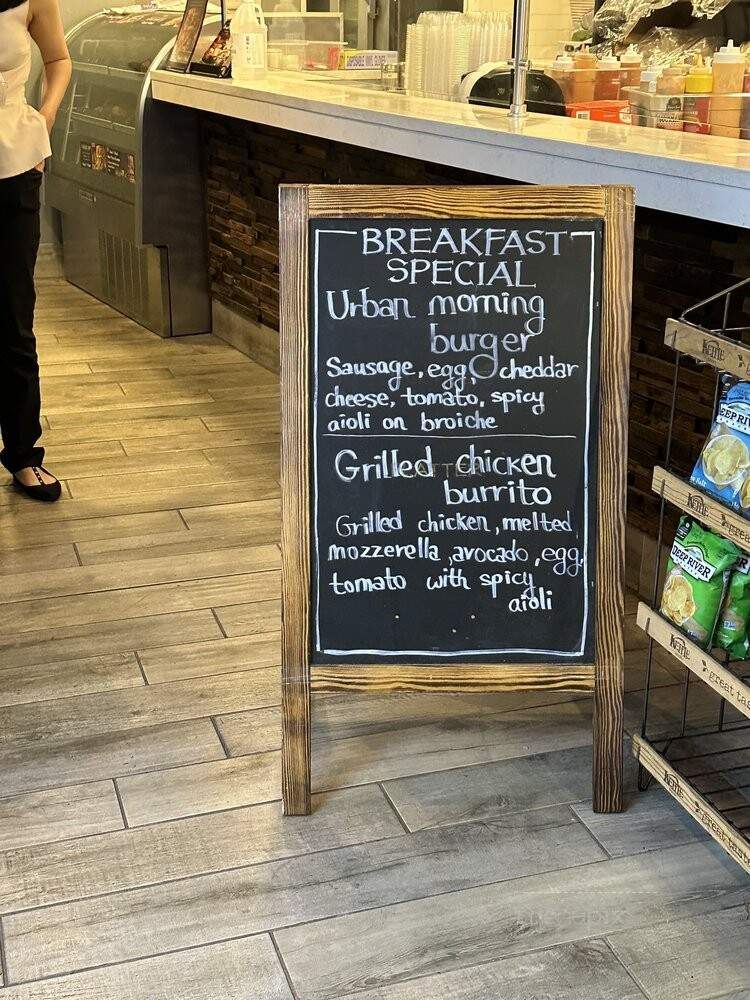 BREAKFAST
SPECIAL
Urban morning
burger
Sausage, egg, cheddar
cheese, tomato, spicy
aioli on broiche
Grilled chicken
burrito
Grilled chicken, melted
mozzerella, avocado, egg,
tomato with spicy
aioli
KETTLE
DEEP RIVER
great
DEEP RIVER
great tas
great taste